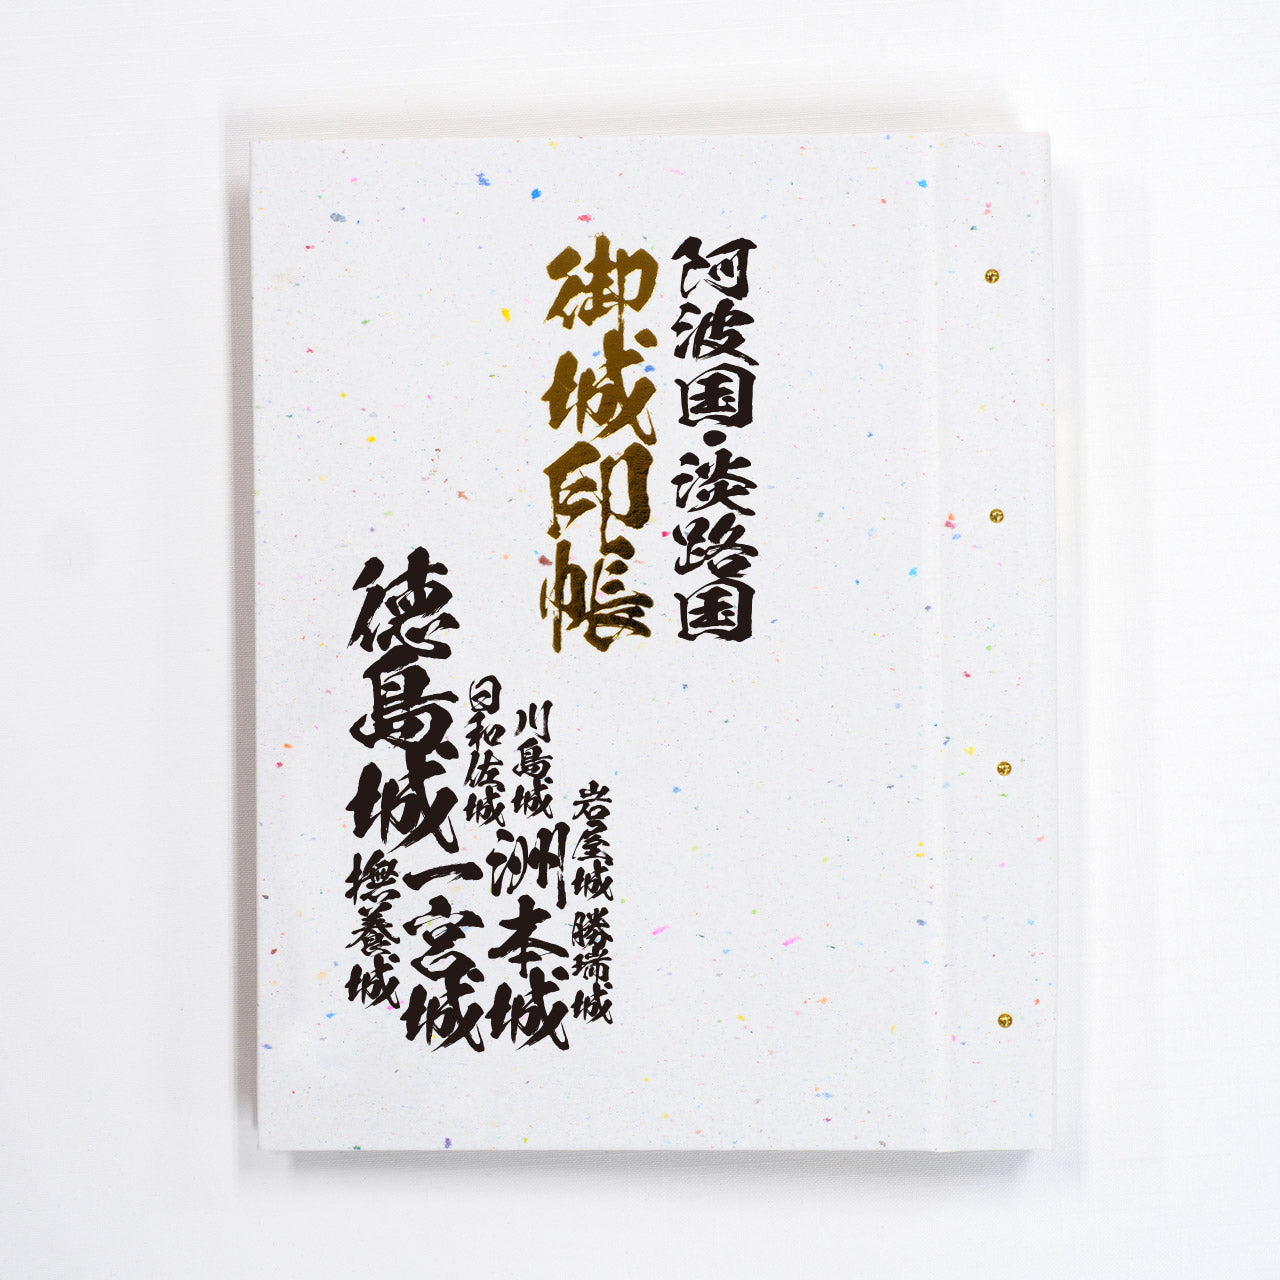 阿波国・淡路国
御城印帳
岩屋城
勝瑞城
川島城
洲本城
日和佐城
一宮城
徳島城
撫養城